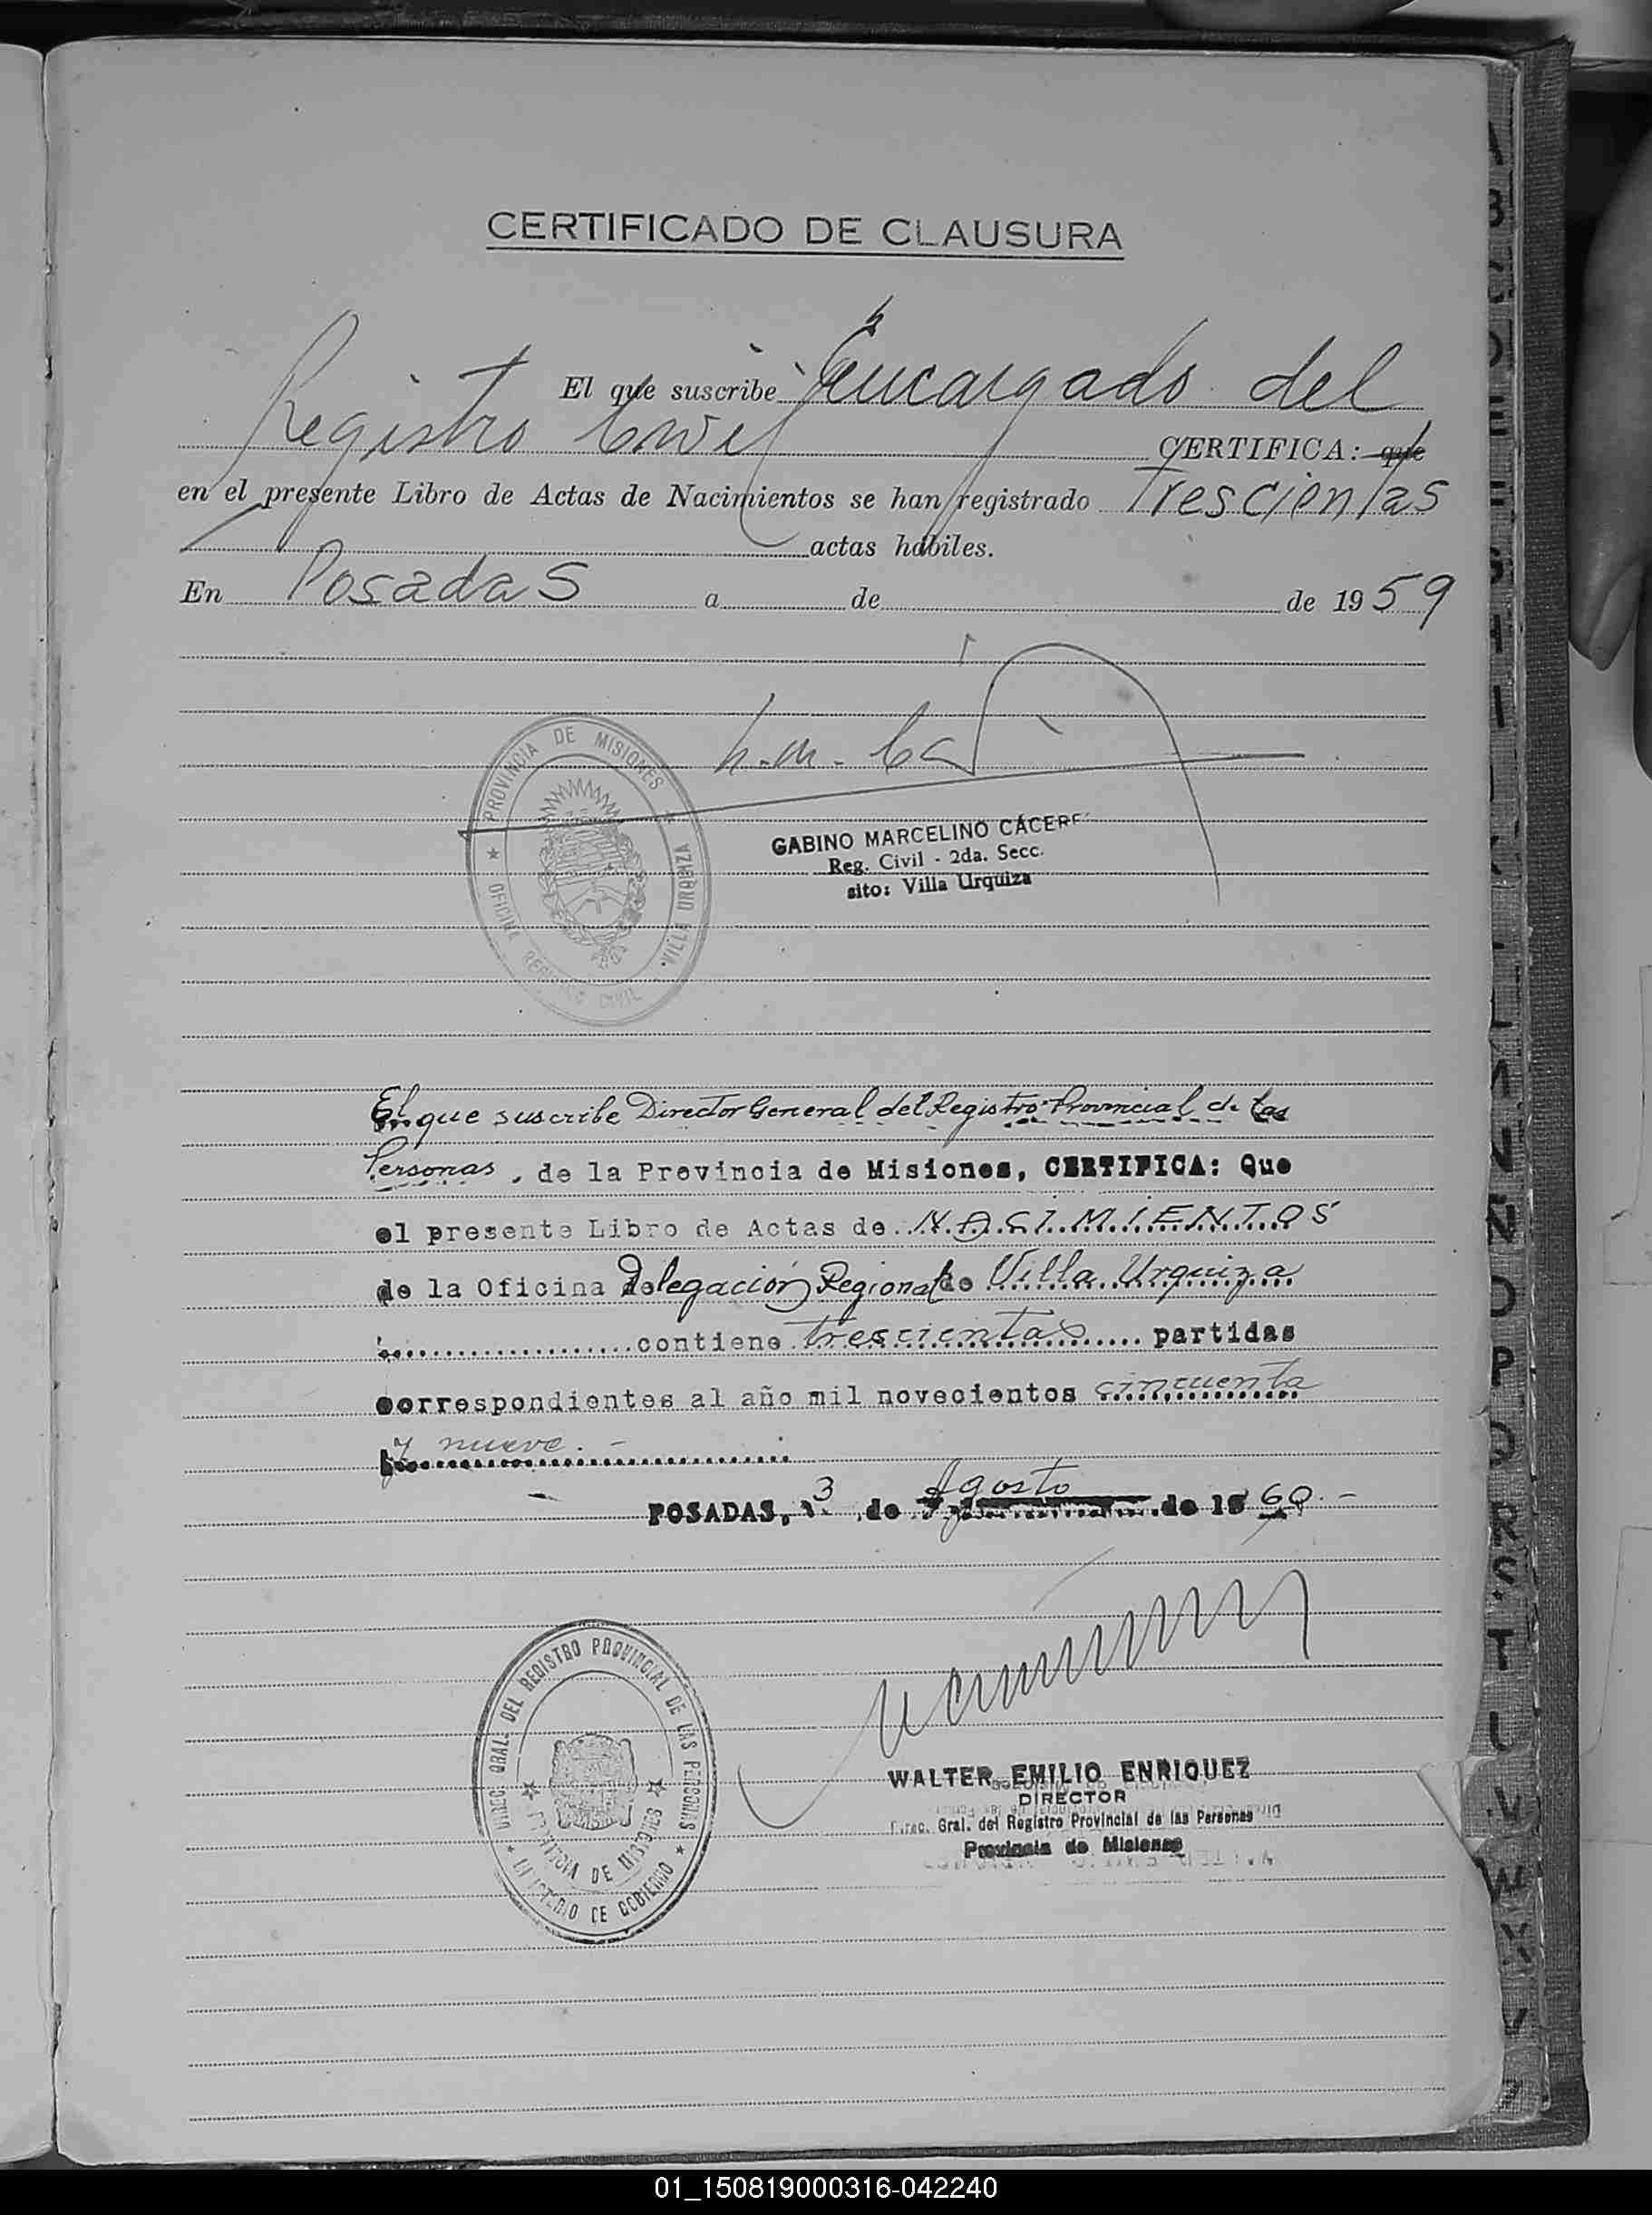 CERTIFICADO DE CLAUSURA
El que suscribe Encargado del
Registro Civil CERTIFICA: que
en el presente Libro de Actas de Nacimientos se han registrado Trescientas
actas hábiles.
En Posadas a de de 1959
PROVINCIA DE MISIONES
VILLA URQUIZA
OFICINA REGISTRO CIVIL
GABINO MARCELINO CÁCERE
Reg. Civil - 2da. Secc.
sito: Villa Urquiza
El que suscribe Director General del Registro Provincial de las
Personas, de la Provincia de Misiones, CERTIFICA: Que
el presente Libro de Actas de NACIMIENTOS
de la Oficina Delegación Regional de Villa Urquiza
contiene trescientas partidas
correspondientes al año mil novecientos cincuenta
y nueve.-
POSADAS, 3 de Agosto de 1960.-
DIREC. GRAL. DEL REGISTRO PROVINCIAL DE LAS PERSONAS
PROVINCIA DE MISIONES
MINISTERIO DE GOBIERNO
WALTER EMILIO ENRIQUEZ
DIRECTOR
Direc. Gral. del Registro Provincial de las Personas
Provincia de Misiones
01_150819000316-042240